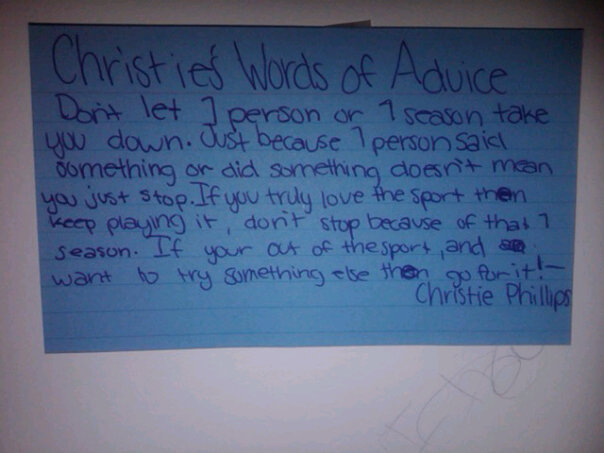 Christie's Words of Advice
Don't let 1 person or 1 season take
you down. Just because 1 person said
something or did something doesn't mean
you just stop. If you truly love the sport then
keep playing it, don't stop because of that 1
season. If your out of the sport, and
want to try something else then go for it! -
Christie Phillips